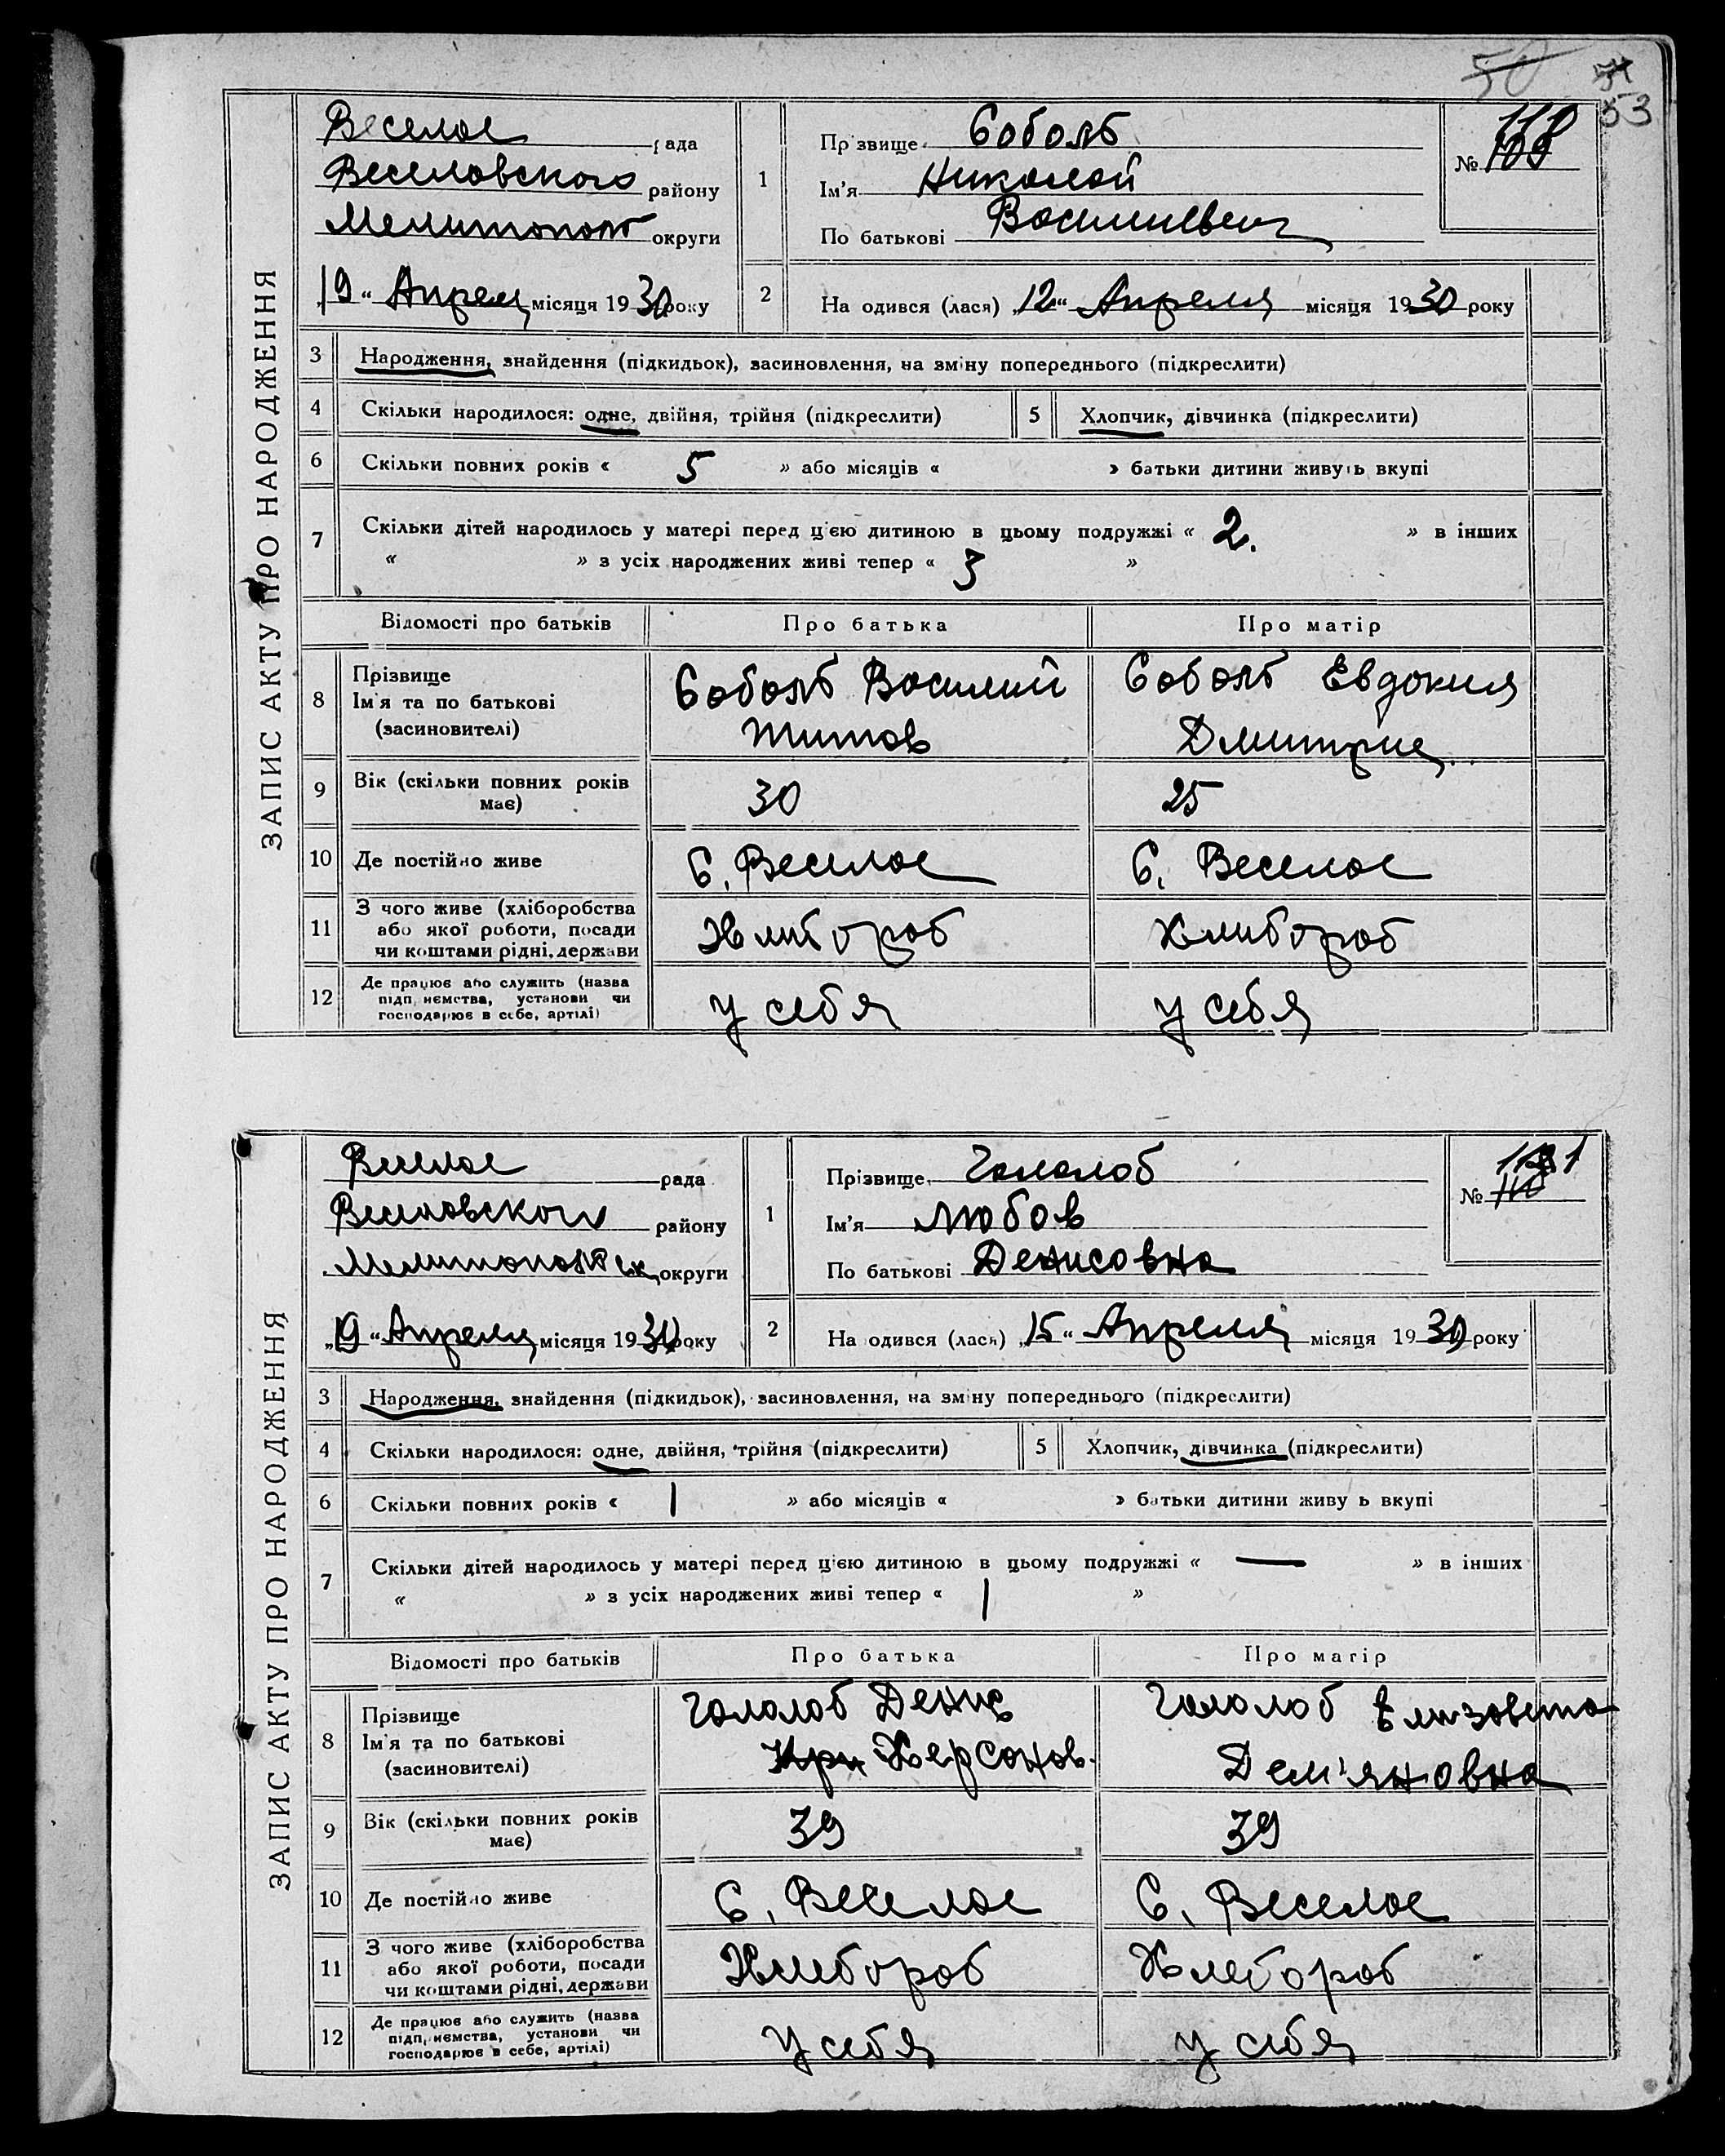 50 53
ЗАПИС АКТУ ПРО НАРОДЖЕННЯ
Веселое рада
Веселовского району
Мелитополь округи
„19“ Апреля місяця 1930 року
1
Прізвище Соболь
Ім'я Николай
По батькові Васильевич
№
2 Народився (лася) „12“ Апреля місяця 1930 року
3 Народження, знайдення (підкидьок), засиновлення, на зміну попереднього (підкреслити)
4 Скільки народилося: одне, двійня, трійня (підкреслити) 5 Хлопчик, дівчинка (підкреслити)
6 Скільки повних років « 5 » або місяців « » батьки дитини живуть вкупі
7 Скільки дітей народилось у матері перед ц'єю дитиною в цьому подружжі « 2. » в інших
« » з усіх народжених живі тепер « 3 »
Відомості про батьків Про батька Про матір
8 Прізвище
Ім'я та по батькові
(засиновителі)
Соболь Василий
Титов
Соболь Евдокия
Дмитрие
9 Вік (скільки повних років
має)
30 25
10 Де постійно живе С. Веселое С. Веселое
11 З чого живе (хліборобства
або якої роботи, посади
чи коштами рідні, держави
Хлибороб Хлибороб
12 Де працює або служить (назва
підприємства, установи чи
господарює в себе, артілі)
у себя у себя
ЗАПИС АКТУ ПРО НАРОДЖЕННЯ
Веселое рада
Веселовского району
Мелитопольск округи
„19“ Апреля місяця 1930 року
1
Прізвище Гололоб
Ім'я Любов
По батькові Денисовна
№
2 Народився (лася) „15“ Апреля місяця 1930 року
3 Народження, знайдення (підкидьок), засиновлення, на зміну попереднього (підкреслити)
4 Скільки народилося: одне, двійня, трійня (підкреслити) 5 Хлопчик, дівчинка (підкреслити)
6 Скільки повних років « 1 » або місяців « » батьки дитини живуть вкупі
7 Скільки дітей народилось у матері перед ц'єю дитиною в цьому подружжі « — » в інших
« » з усіх народжених живі тепер « 1 »
Відомості про батьків Про батька Про матір
8 Прізвище
Ім'я та по батькові
(засиновителі)
Гололоб Денис
Хри Херсонов.
Гололоб Елизовета
Дем'яновна
9 Вік (скільки повних років
має)
39 39
10 Де постійно живе С. Веселое С. Веселое
11 З чого живе (хліборобства
або якої роботи, посади
чи коштами рідні, держави
Хлебороб Хлебороб
12 Де працює або служить (назва
підприємства, установи чи
господарює в себе, артілі)
У себя у себя